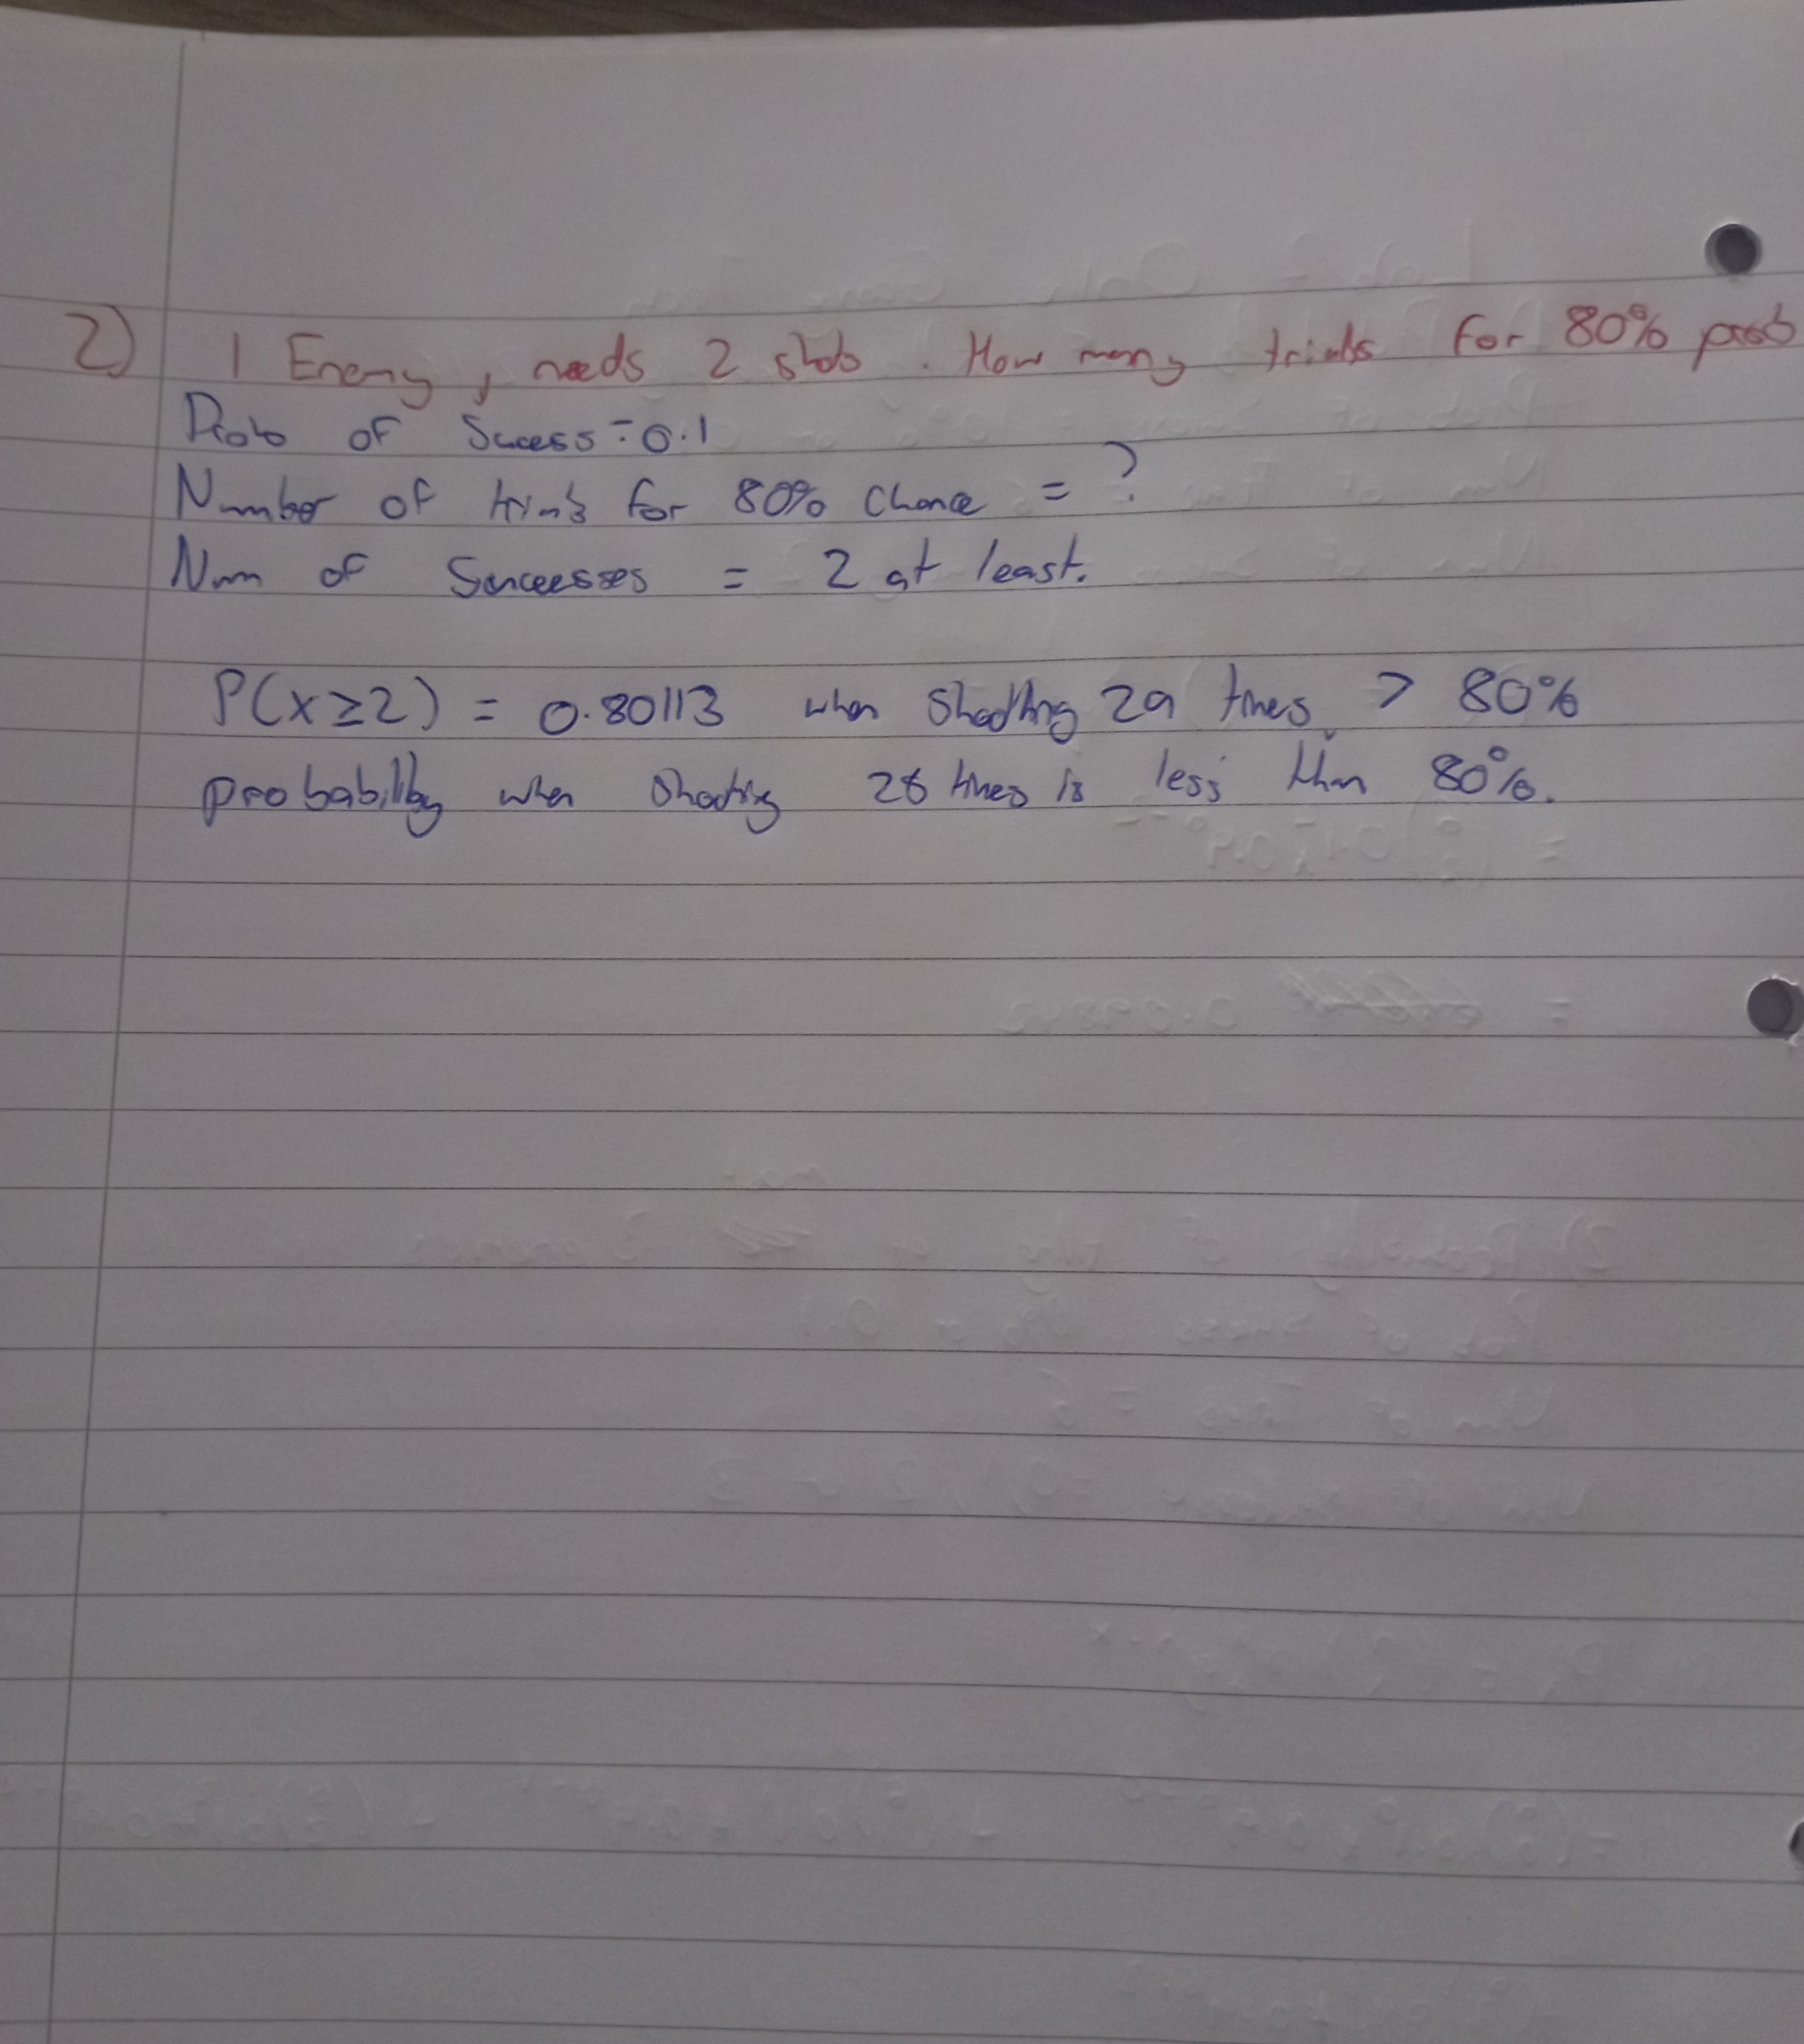 2) 1 Enemy, needs 2 shots. How many trials for 80% prob
Prob of Sucess = 0.1
Number of trials for 80% Chance = ?
Num of Successes = 2 at least.
P(x≥2) = 0.80113 when shooting 29 times > 80%
probability when shooting 28 times is less than 80%.